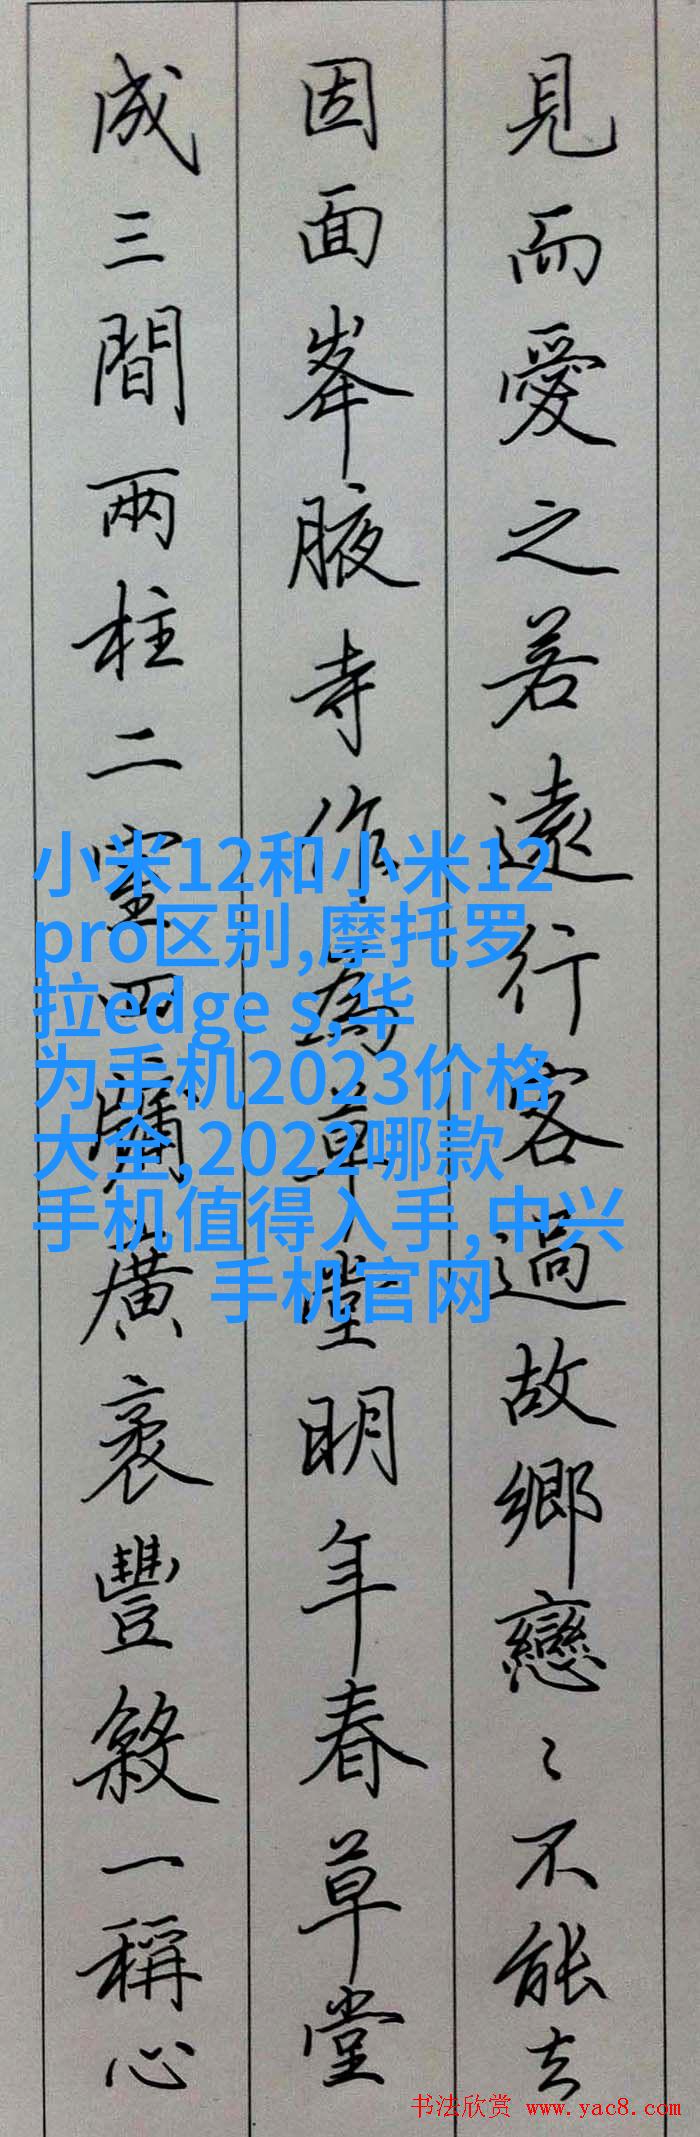 見而愛之若遠行客過故鄉戀〻不能去
因面峯腋寺作為草堂明年春草堂
成三間兩柱二室四牖廣袤豐殺一稱心
小米12和小米12
pro区别,摩托罗
拉edge s,华
为手机2023价格
大全,2022哪款
手机值得入手,中兴
手机官网
书法欣赏 www.yac8.com